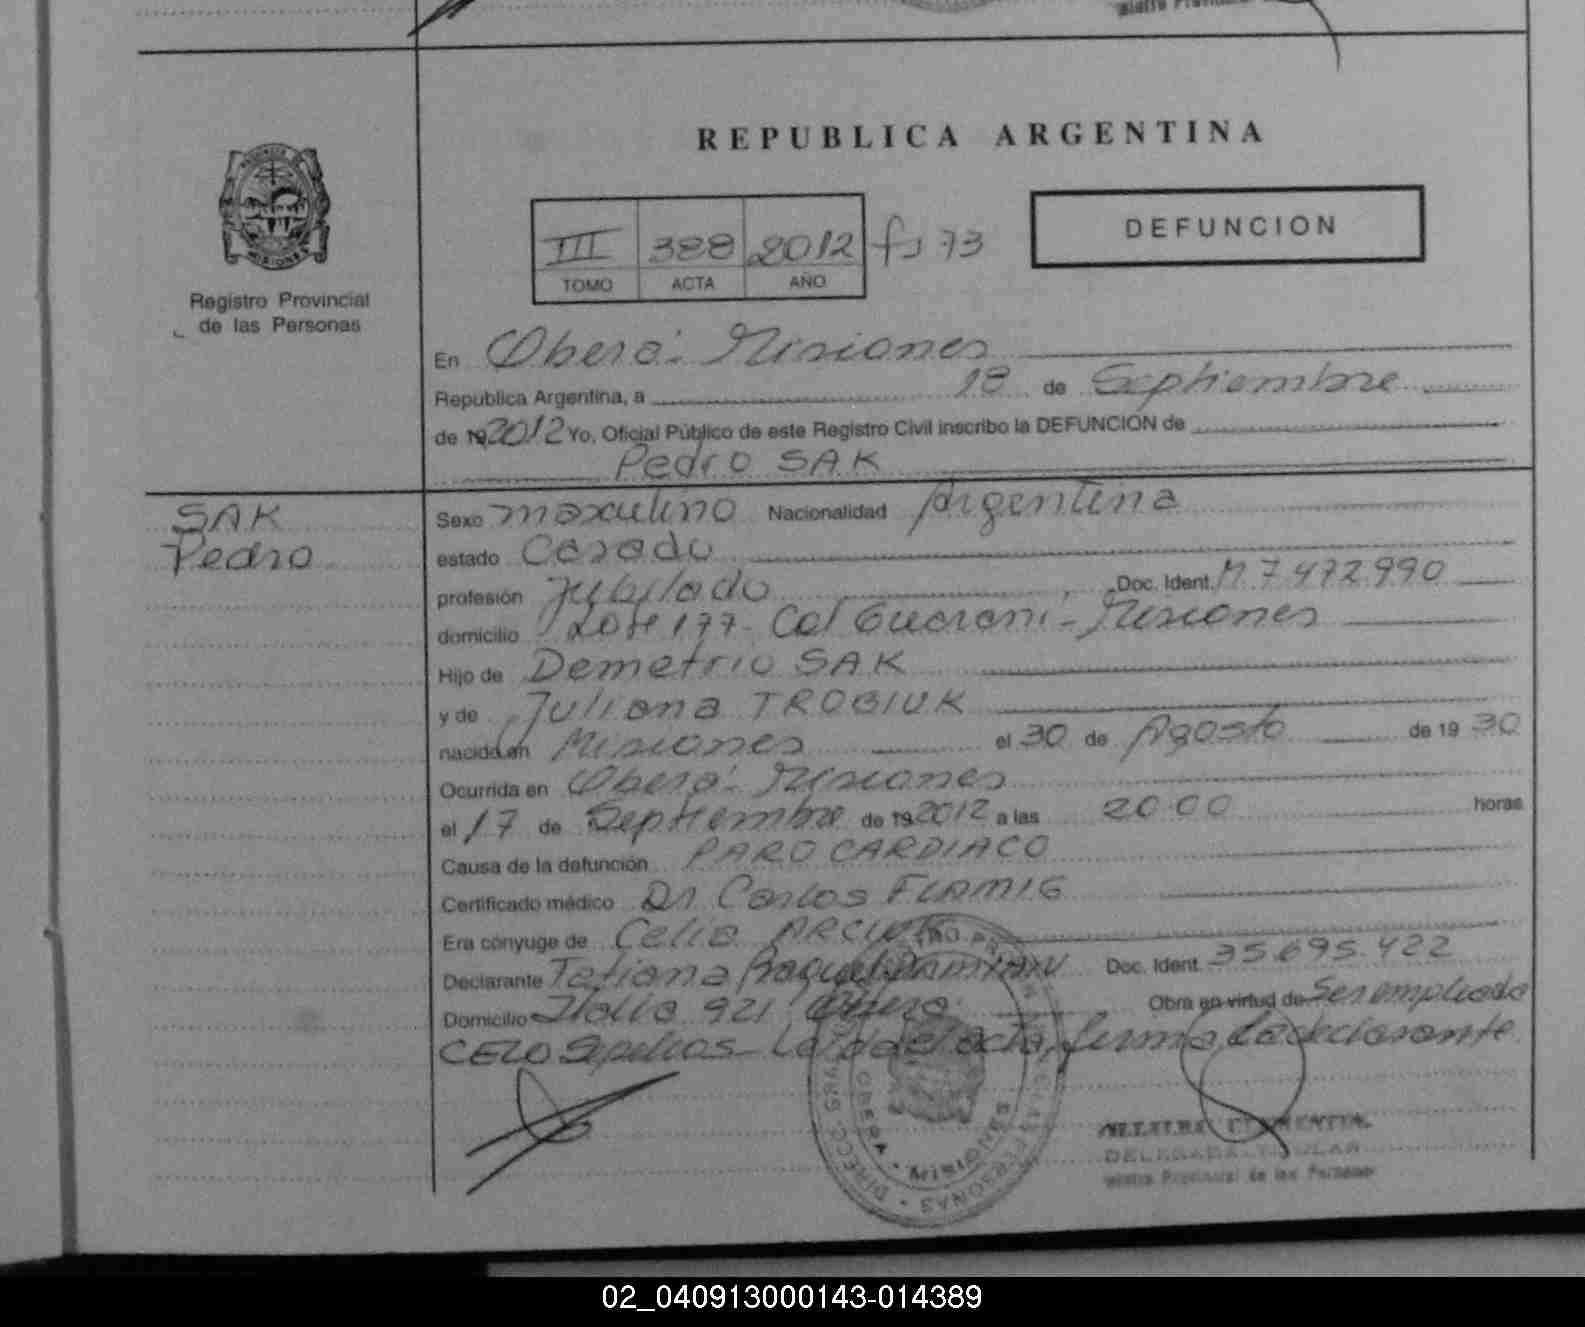 REPUBLICA ARGENTINA
III 388 2012 fs 73
TOMO ACTA AÑO
DEFUNCION
Registro Provincial
de las Personas
En Oberá - Misiones
Republica Argentina, a 18 de Septiembre
de 19 2012 Yo, Oficial Público de este Registro Civil inscribo la DEFUNCION de
Pedro SAK
SAK
Pedro
Sexo masculino Nacionalidad Argentina
estado Casado
profesión Jubilado, Doc. Ident. M 7472990
domicilio Lote 177 - Col Guaraní - Misiones
Hijo de Demetrio SAK
y de Juliana TROBIUK
nacido en Misiones el 30 de Agosto de 19 30
Ocurrida en Oberá - Misiones
el 17 de Septiembre de 19 2012 a las 20 00 horas
Causa de la defunción PARO CARDIACO
Certificado médico Dr. Carlos FLAMIG
Era conyuge de Celia
Declarante Tatiana Raquel Doc. Ident. 35.695.422
Domicilio Italia 921 Oberá Obra en virtud de Ser empleada
CELO Sepelios - Leída el acta, firma la declarante.
OBERA - MISIONES
DELEGADA TITULAR
Provincial de las Personas
02_040913000143-014389